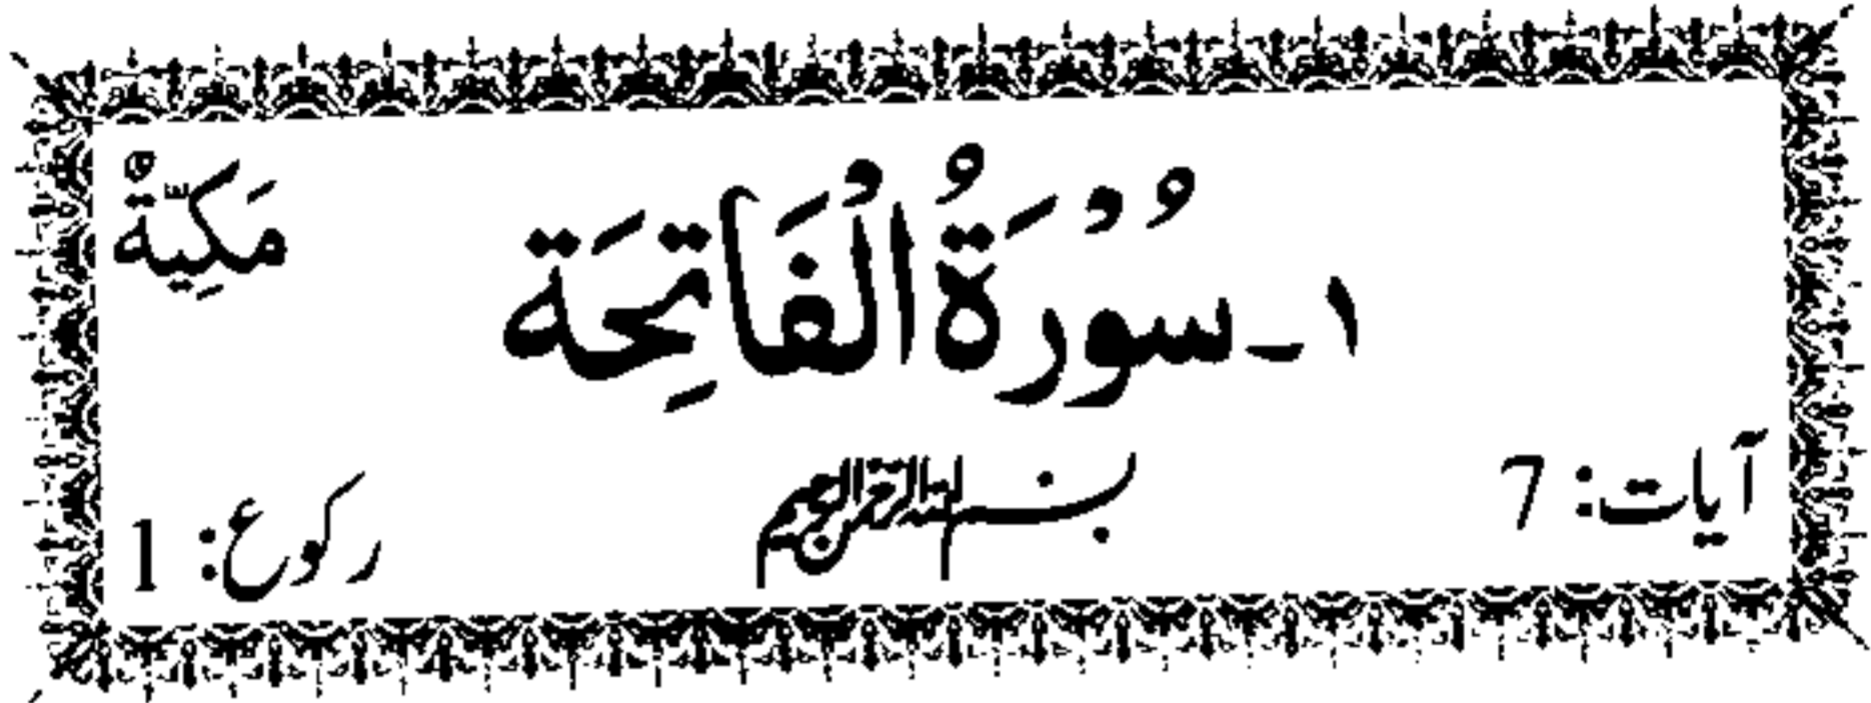 ١ـ سُوْرَةُ الْفَاتِحَة مَكِّيَّةٌ
آیات: 7 بسم الله الرحمن الرحيم رکوع: 1